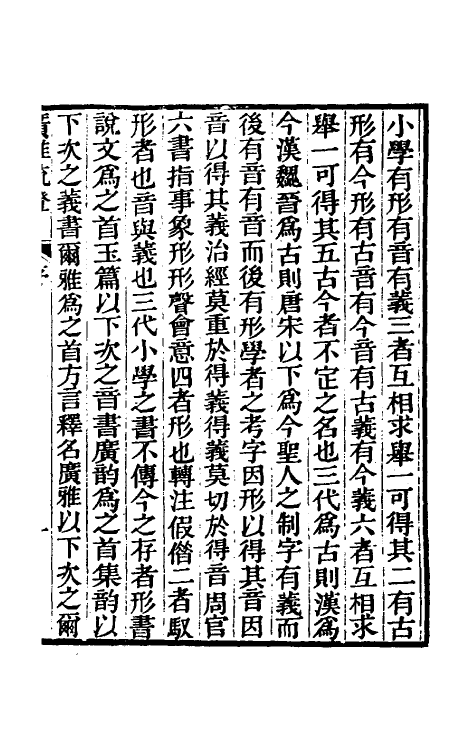 小學有形有音有義三者互相求舉一可得其二有古
形有今形有古音有今音有古義有今義六者互相求
舉一可得其五古今者不定之名也三代爲古則漢爲
今漢魏晉爲古則唐宋以下爲今聖人之制字有義而
後有音有音而後有形學者之考字因形以得其音因
音以得其義治經莫重於得義得義莫切於得音周官
六書指事象形形聲會意四者形也轉注假借二者馭
形者也音與義也三代小學之書不傳今之存者形書
說文爲之首玉篇以下次之音書廣韵爲之首集韵以
下次之義書爾雅爲之首方言釋名廣雅以下次之爾
廣雅疏證 序 一